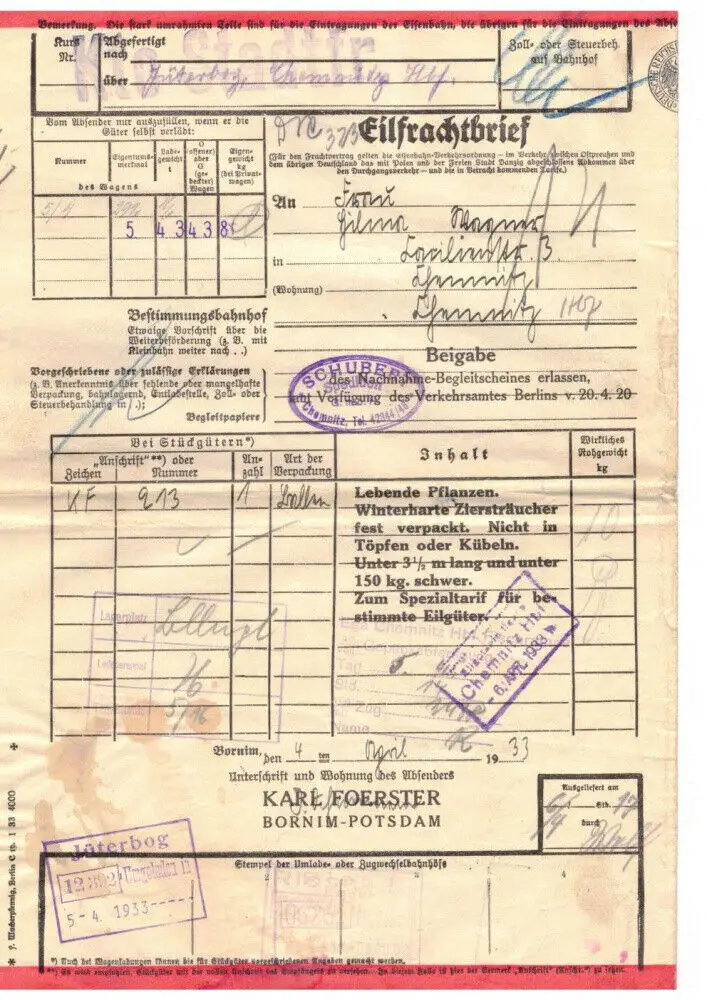 Bemerkung. Die stark umrahmten Teile sind für die Eintragungen der Eisenbahn, die übrigen für die Eintragungen des Abse
Kurs
Nr.
Abgefertigt
nach
über Jüterbog, Chemnitz Hbf.
Zoll- oder Steuerbeh.
auf Bahnhof
Vom Absender nur auszufüllen, wenn er die
Güter selbst verlädt:
Nummer
Eigentums-
merkmal
Lade-
gewicht
t
O
(offener)
oder
G
(ge-
deckter)
Wagen
Eigen-
gewicht
kg
(bei Privat-
wagen)
des Wagens
5 43438
373
Eilfrachtbrief
(Für den Frachtvertrag gelten die Eisenbahn-Verkehrsordnung — im Verkehr zwischen Ostpreußen und
dem übrigen Deutschland das mit Polen und der Freien Stadt Danzig abgeschlossene Abkommen über
den Durchgangsverkehr — und die in Betracht kommenden Tarife.)
An Frau
Wagner
in Cäcilienstr. 3
(Wohnung) Chemnitz
Chemnitz Hbf
Bestimmungsbahnhof
Etwaige Vorschrift über die
Weiterbeförderung (z. B. mit
Kleinbahn weiter nach . .)
Vorgeschriebene oder zulässige Erklärungen
(z. B. Anerkenntnis über fehlende oder mangelhafte
Verpackung, bahnlagernd, Entladestelle, Zoll- oder
Steuerbehandlung in . .);
Begleitpapiere
Beigabe
des Nachnahme-Begleitscheines erlassen,
laut Verfügung des Verkehrsamtes Berlins v. 20.4.20
SCHUBERT
Chemnitz, Tel.
Bei Stückgütern*)
„Anschrift"**) oder
Zeichen Nummer
An-
zahl
Art der
Verpackung
Inhalt
Wirkliches
Rohgewicht
kg
KF 213 1 Ballen
Lebende Pflanzen.
Winterharte Ziersträucher
fest verpackt. Nicht in
Töpfen oder Kübeln.
Unter 3½ m lang und unter
150 kg. schwer.
Zum Spezialtarif für be-
stimmte Eilgüter.
10
Lagerplatz
16
5/16
Chemnitz Hbf
Tag
Std.
Zug
Name
Chemnitz Hbf
- 6. APR. 1933
Bornim, den 4 ten April 1933
Unterschrift und Wohnung des Absenders
KARL FOERSTER
BORNIM-POTSDAM
Ausgeliefert am
Stb. 17
durch
Jüterbog
Umgeladen
5-4. 1933-----
Stempel der Umlade- oder Zugwechselbahnhöfe
2 3 4
*) Auch bei Wagenladungen können die für Stückgüter vorgeschriebenen Angaben gemacht werden.
**) Es wird empfohlen, Stückgüter mit der vollen Anschrift des Empfängers zu versehen. In diesem Falle ist hier der Vermerk „Anschrift" (Anschr.") zu setzen.